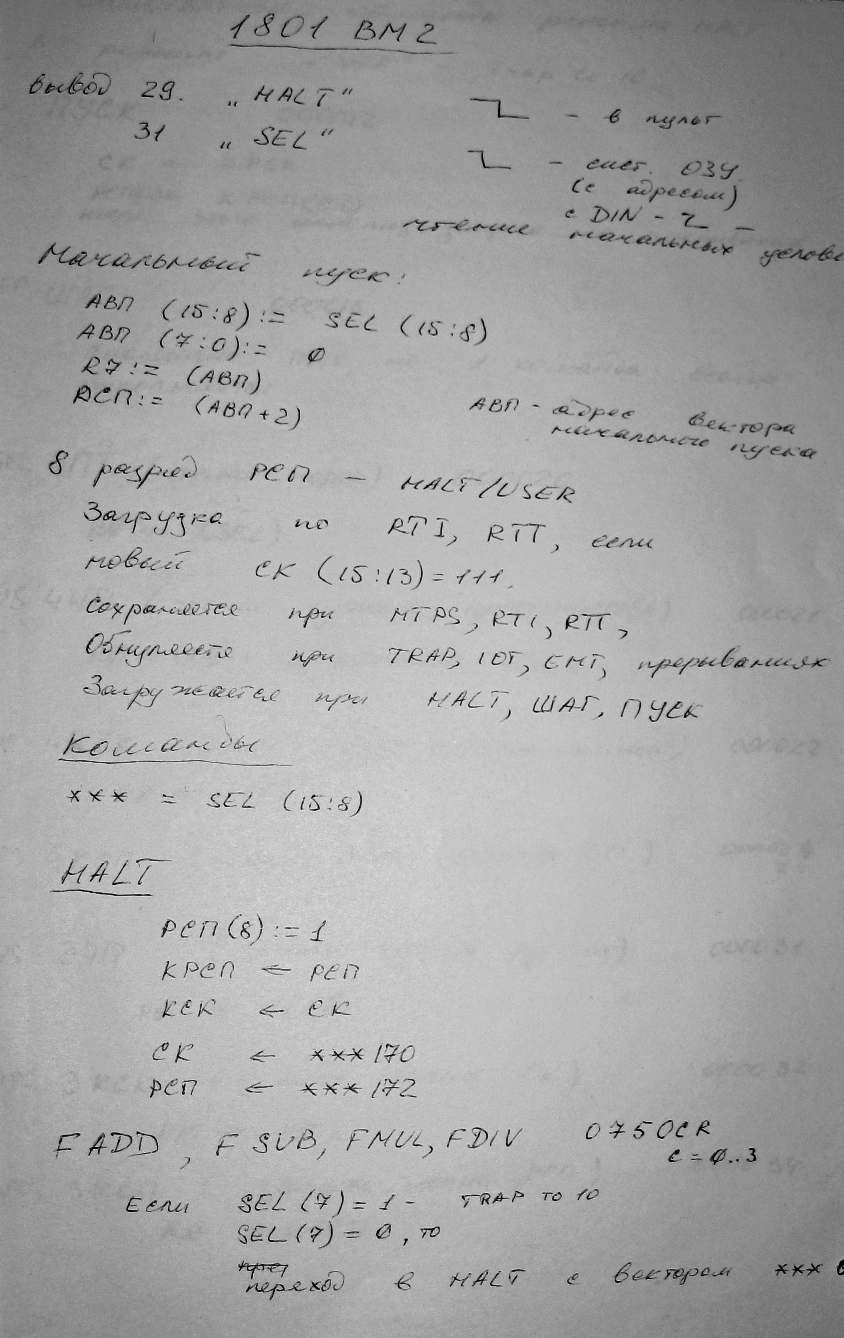 1801 ВМ2
вывод 29. „HALT“ – в пульт
31 „SEL“ – сист. ОЗУ.
(с адресом)
с DIN – –
чтение начальных услови
Начальный пуск:
АВП (15:8):= SEL (15:8)
АВП (7:0):= 0
R7:= (АВП)
РСП:= (АВП+2)
АВП – адрес вектора
начального пуска
8 разряд РСП – HALT/USER
Загрузка по RTI, RTT, если
новый СК (15:13)=111.
Сохраняется при MTPS, RTI, RTT,
Обнуляется при TRAP, IOT, EMT, прерываниях
Загружается при HALT, ШАГ, ПУСК
Команды
*** = SEL (15:8)
HALT
РСП(8):=1
КРСП ← РСП
КСК ← СК
СК ← ***170
РСП ← ***172
FADD, FSUB, FMUL, FDIV 0750CR
C=0..3
Если SEL(7)=1 – TRAP TO 10
SEL(7)=0, то
переход в HALT с вектором ***